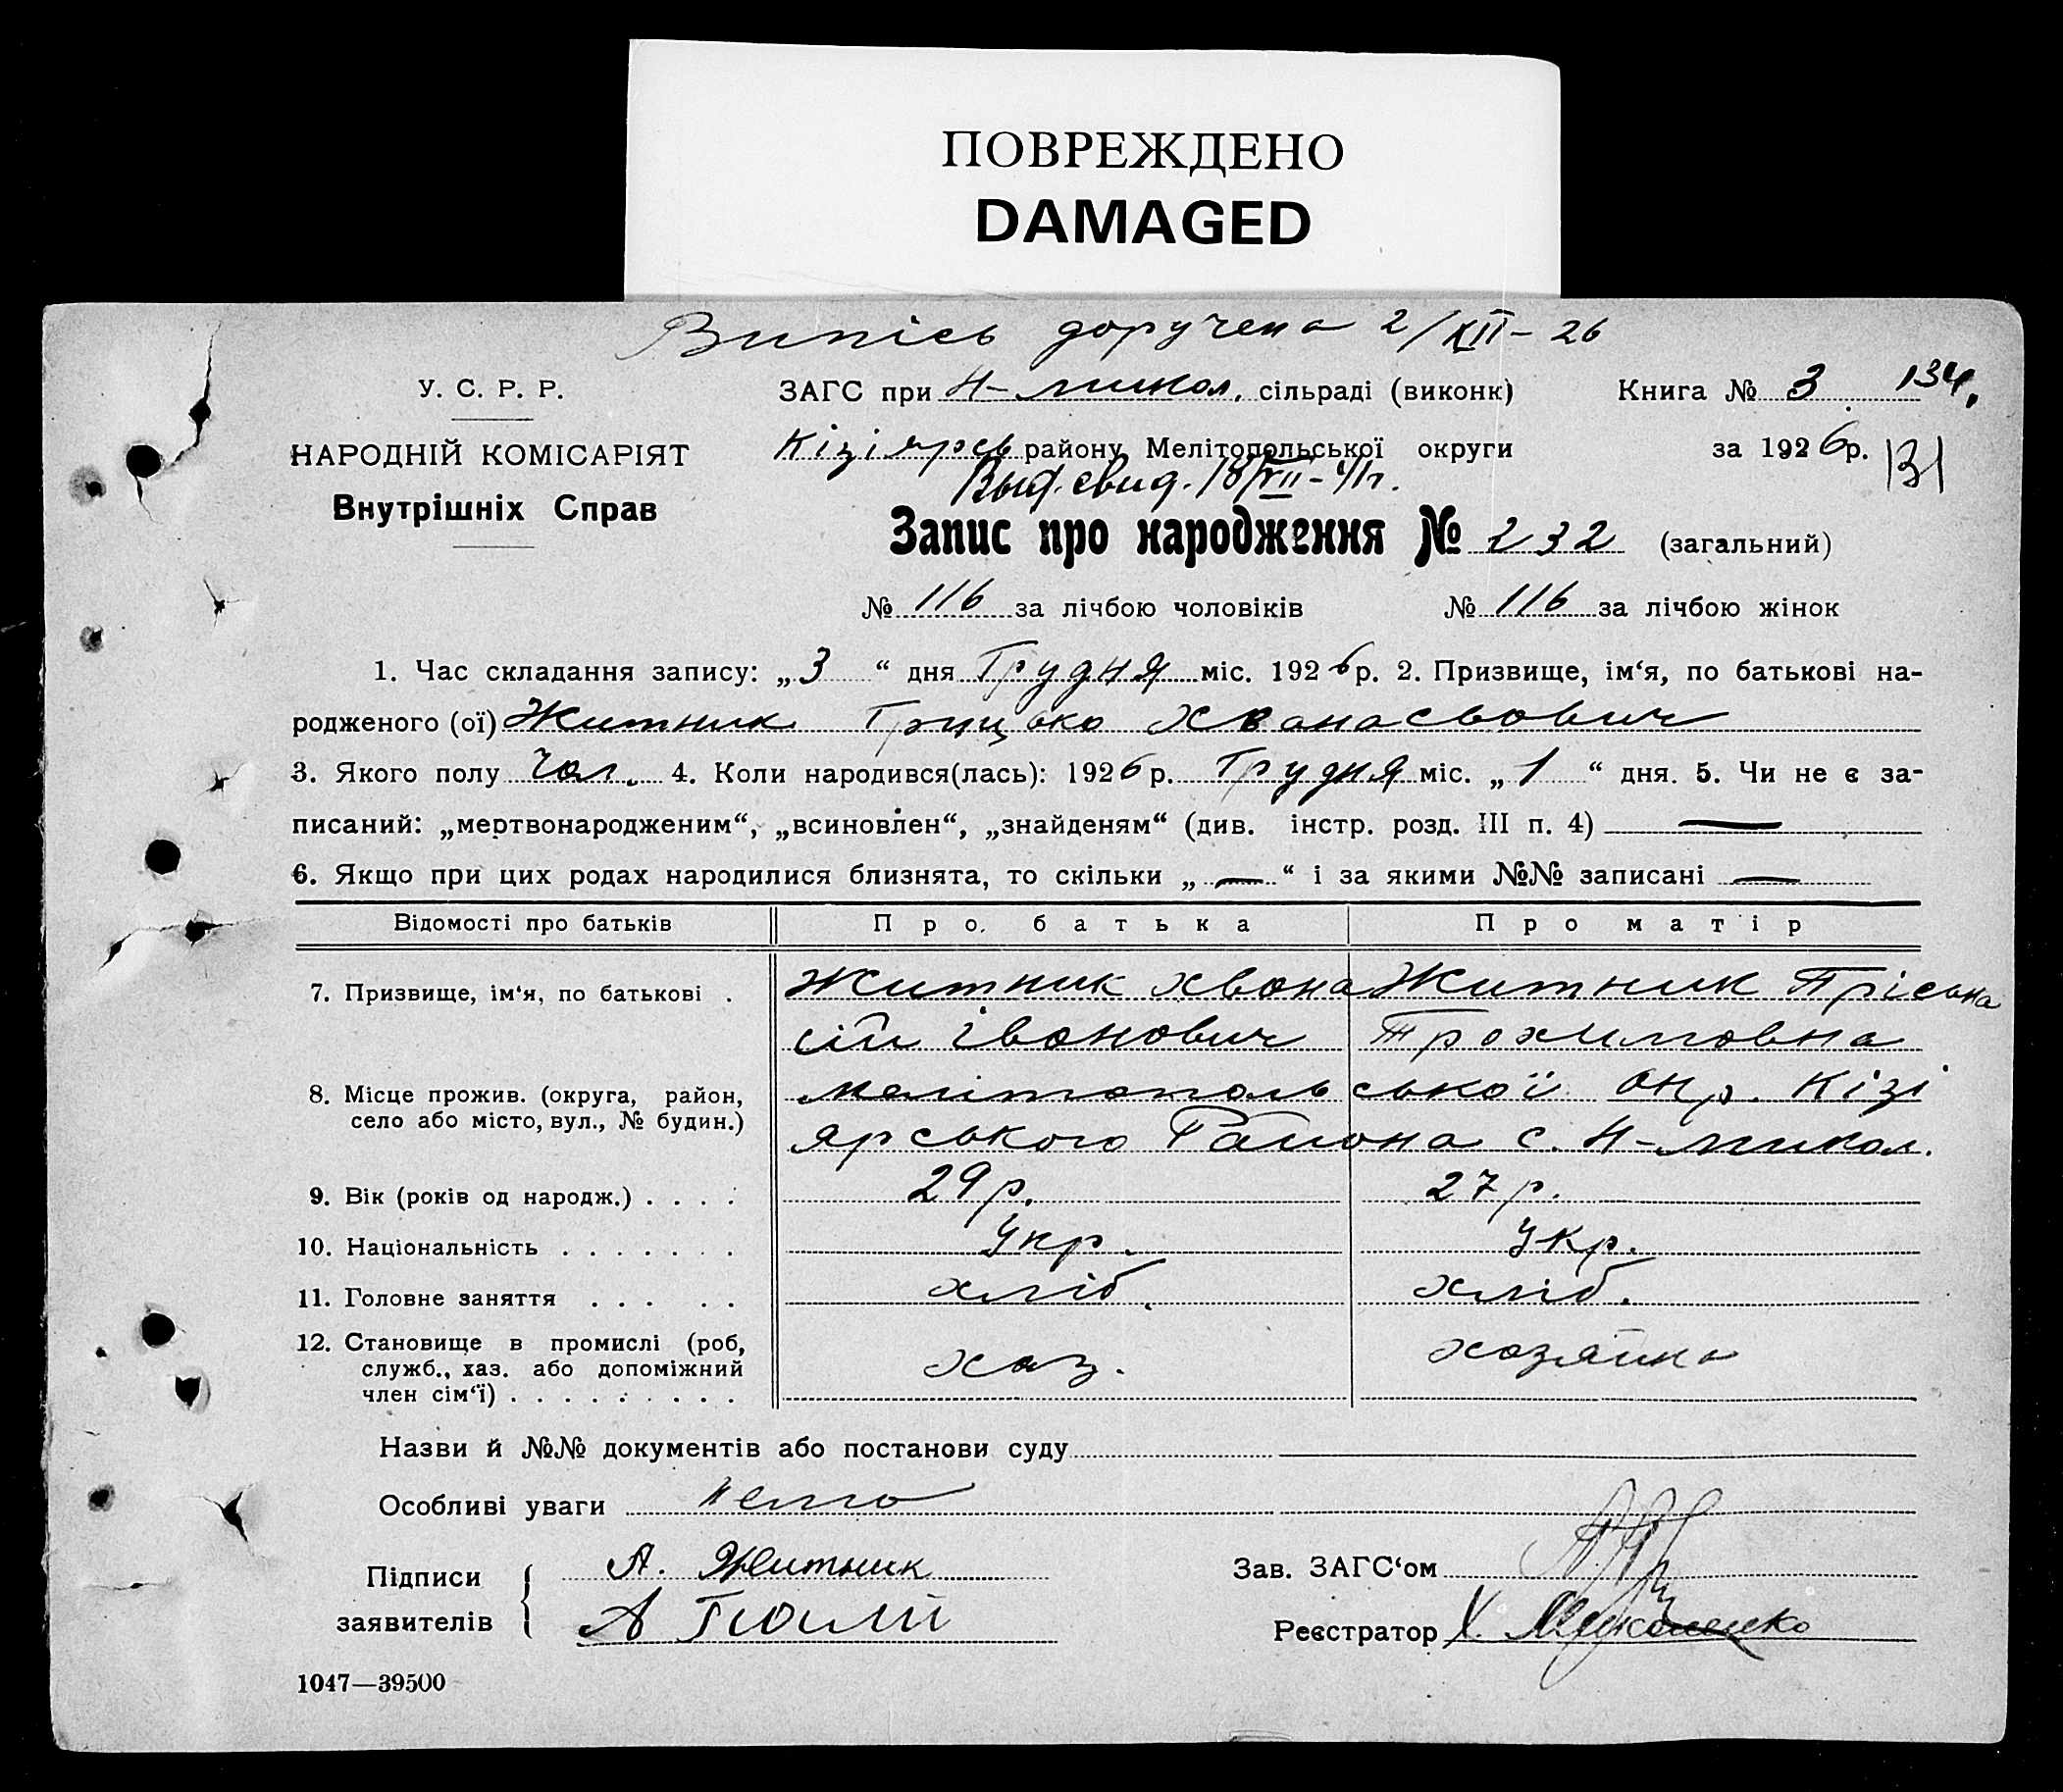 ПОВРЕЖДЕНО
DAMAGED
Випісь доручена 2/XII-26
У. С. Р. Р.
ЗАГС при Н-микол. сільраді (виконк)
Книга № 3 134.
НАРОДНІЙ КОМІСАРІЯТ
Кізіярсь району Мелітопольської округи
за 1926р. 131
Внутрішніх Справ
Выд. свид. 18/VII-41г.
Запис про народження № 232 (загальний)
№ 116 за лічбою чоловіків № 116 за лічбою жінок
1. Час складання запису: „3“ дня Грудня міс. 1926р. 2. Призвище, ім‘я, по батькові на-
родженого (ої) Житник Грицько Хванасьович
3. Якого полу Чол. 4. Коли народився(лась): 1926р. Грудня міс. „1“ дня. 5. Чи не є за-
писаний: „мертвонародженим“, „всиновлен“, „знайденям“ (див. інстр. розд. III п. 4) —
6. Якщо при цих родах народилися близнята, то скільки „—“ і за якими №№ записані —
Відомості про батьків Про батька Про матір
7. Призвище, ім‘я, по батькові . Житник Хвона Житник Пріська
сій Івонович Трохимовна
8. Місце прожив. (округа, район, мелітопольської окр. Кізі
село або місто, вул., № будин.) ярського Района с. Н-микол.
9. Вік (років од народж.) . . . . 29р. 27р.
10. Національність . . . . . . . Укр. Укр.
11. Головне заняття . . . . . хліб. хліб.
12. Становище в промислі (роб,
служб., хаз. або допоміжний хаз. хозяйка
член сім‘ї) . . . . . . . . .
Назви й №№ документів або постанови суду
Особливі уваги нема
Підписи А. Житник
Зав. ЗАГС‘ом
заявителів А
Реєстратор Х.
1047—39500